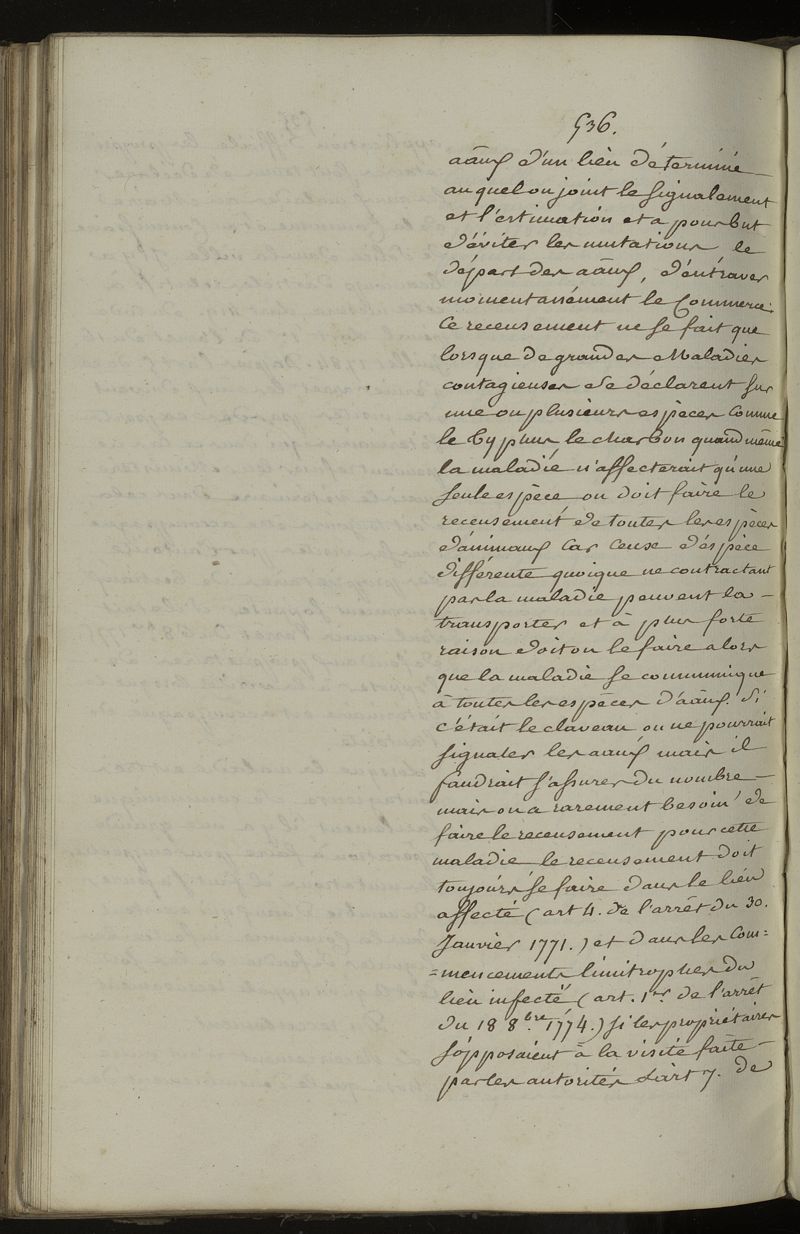 536.
aãux d'un lieu déterminé
au quel on joint le signalement
et l'estimation et a pour but
d'éviter les mutations le
départ des aãux, d'entraver
momentanément le Commerce.
Ce recensement ne se fait que
lorsque de grandes Maladies
contagieuses se déclarent sur
une ou plusieurs espèces comme
le typhus le charbon quand même
la maladie n'affecterait qu'une
seule espèce on doit faire le
recensement de toutes les espèces
d'animaux car ceux d'espèce
différente quoique ne contractant
pas la maladie peuvent la
transporter et à plus forte
raison doit on le faire alors
que la maladie se communique
à toutes les espèces d'aãux. Si
c'était le claveau on ne pourrait
signaler les aãux mais il
faudrait s'assurer du nombre
mais on a rarement besoin de
faire le recensement pour cette
maladie le recensement doit
toujours se faire dans le lieu
affecté (art 4. de l'arrêt du 30.
Janvier 1771.) et dans les Com=
=mencements limitrophes du
lieu infecté (art. 1er de l'arrêt
du 18 8bre 1774.) si les propriétaires
s'opposaient à la visite faite
par les autorités l'art 7. de